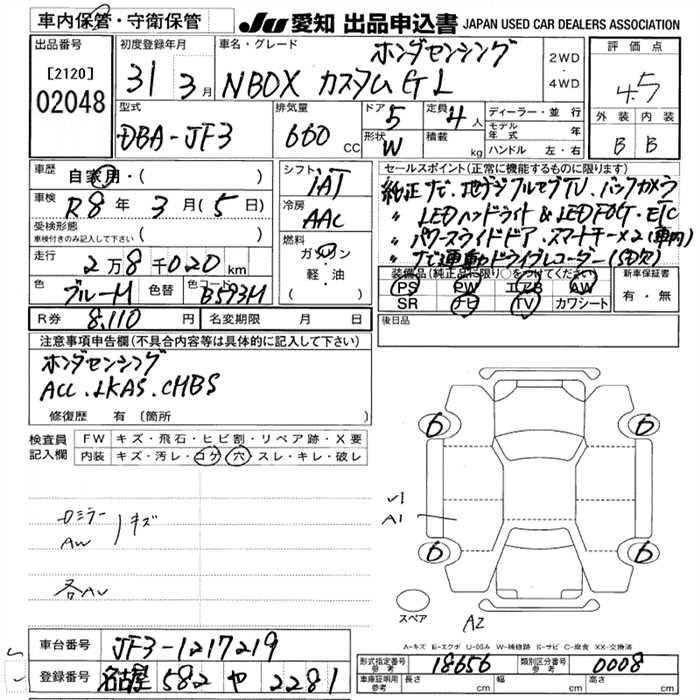 車内保管・守衛保管
JU 愛知 出品申込書 JAPAN USED CAR DEALERS ASSOCIATION
出品番号 [2120] 02048
初度登録年月 31 3月
車名・グレード ホンダセンシング
NBOX カスタムGL
2WD・4WD
評価点 4.5
外装 内装
B B
型式 DBA-JF3
排気量 660 CC
ドア 5 定員 4人
形状 W 積載 kg
ディーラー・並行
モデル年式 年
ハンドル 左・右
車歴 自家用・( )
車検 R8年 3月(5日)
受検形態 車検付きのみ記入して下さい ( )
走行 2万8千020km
色 ブルーM 色替 色コード B593M
シフト IAT
冷房 AAC
燃料 ガソリン
軽・油
( )
セールスポイント(正常に機能するものに限ります)
純正ナビ、地デジフルセグTV、バックカメラ
〃 LEDハンドライト&LEDFOG・ETC
〃 パワースライドドア、スマートキー×2(車内)
〃 ナビ連動ドライブレコーダー(SD欠)
装備品(純正品に限り○をつけてください)
PS PW エアB AW
SR ナビ TV カワシート
新車保証書 有・無
R券 8,110円 名変期限 月 日
後日品
注意事項申告欄(不具合内容等は具体的に記入して下さい)
ホンダセンシング
ACC.LKAS.CMBS
修復歴 有(箇所 )
検査員記入欄 FW キズ・飛石・ヒビ割・リペア跡・X要
内装 キズ・汚レ・コゲ・穴・スレ・キレ・破レ
ミラー キズ
AW
各AW
6 6
A1
6 6
スペア
A2
A-キズ E-エクボ U-凹み W-補修跡 S-サビ C-腐食 XX-交換済
車台番号 JF3-1217219
登録番号 名古屋 582 や 2281
形式指定番号 参考 18656 類別区分番号 参考 0008
車庫証明用 参考 長さ cm 幅 cm 高さ cm